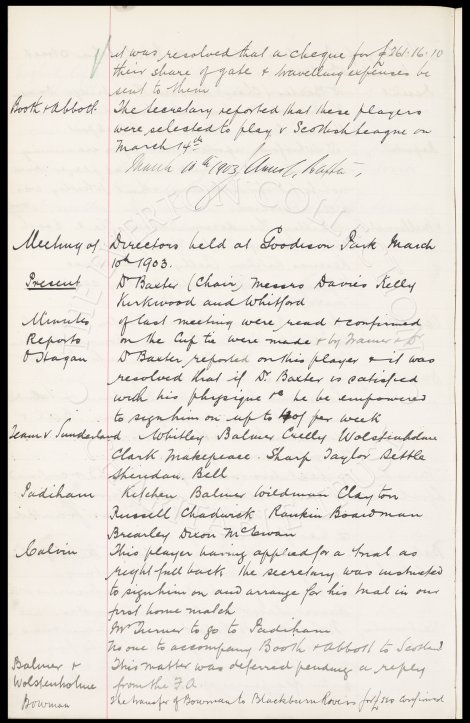 it was resolved that a cheque for £261.16.10
their share of gate & travelling expenses be
sent to them
Booth & Abbott The Secretary reported that these players
were selected to play v Scottish League on
March 14th
March 10th 1903 Baxter
Meeting of Directors held at Goodison Park March
10th 1903.
Present Dr Baxter (Chair) Messrs Davies Kelly
Kirkwood and Whitford
Minutes of last meeting were read & confirmed
Reports on the Cup tie were made & by Trainer & Dr
O'Hagan Dr Baxter reported on this player & it was
resolved that if Dr Baxter is satisfied
with his physique &c he be empowered
to sign him on up to 40/ per week
Team v Sunderland Whitley Balmer Crelly Wolstenholme
Clark Makepeace. Sharp Taylor Settle
Sheridan. Bell
Padiham Kitchen Balmer Wildman Clayton
Russell Chadwick Rankin Boardman
Brearley Dixon McEwan
Calvin This player having applied for a trial as
right full back the secretary was instructed
to sign him on and arrange for his trial in our
first home match
Mr Turner to go to Padiham
No one to accompany Booth & Abbott to Scotland
Balmer & This matter was deferred pending a reply
Wolstenholme from the F.A
Bowman The transfer of Bowman to Blackburn Rovers for confirmed
EVERTON COLLECTION